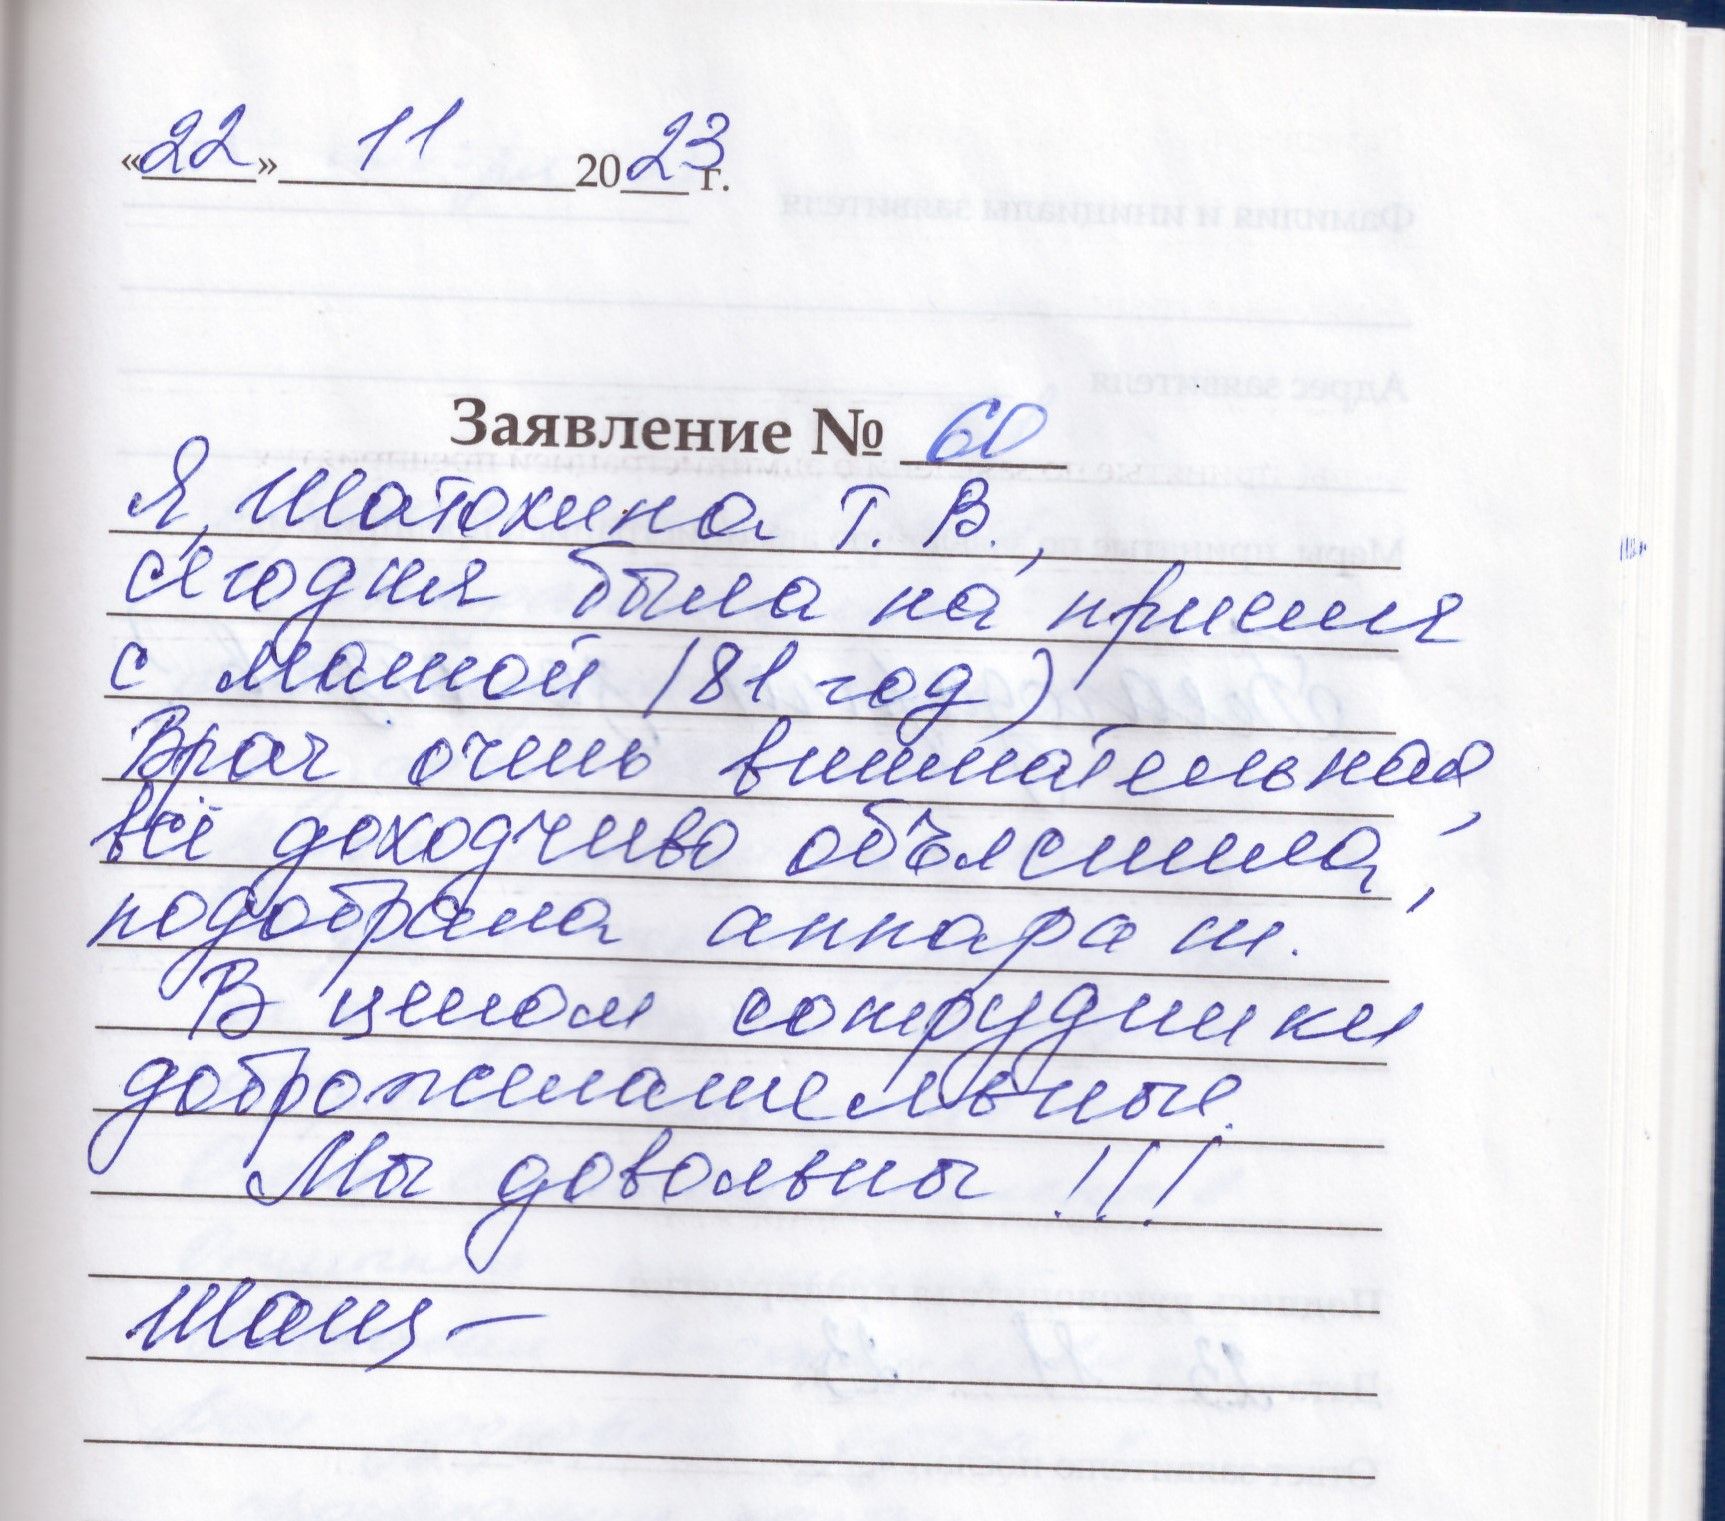 «22» 11 2023 г.
Заявление № 60
Я, Шатохина Т. В.,
сегодня была на приёме
с мамой (81 год)
Врач очень внимательная,
всё доходчиво объяснила,
подобрала аппарат.
В целом сотрудники
доброжелательные.
Мы довольны !!!